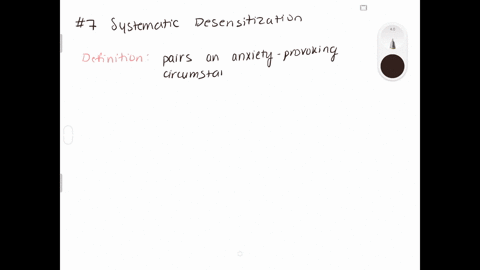 #7 Systematic Desensitization
Definition: pairs an anxiety-provoking
circumstai